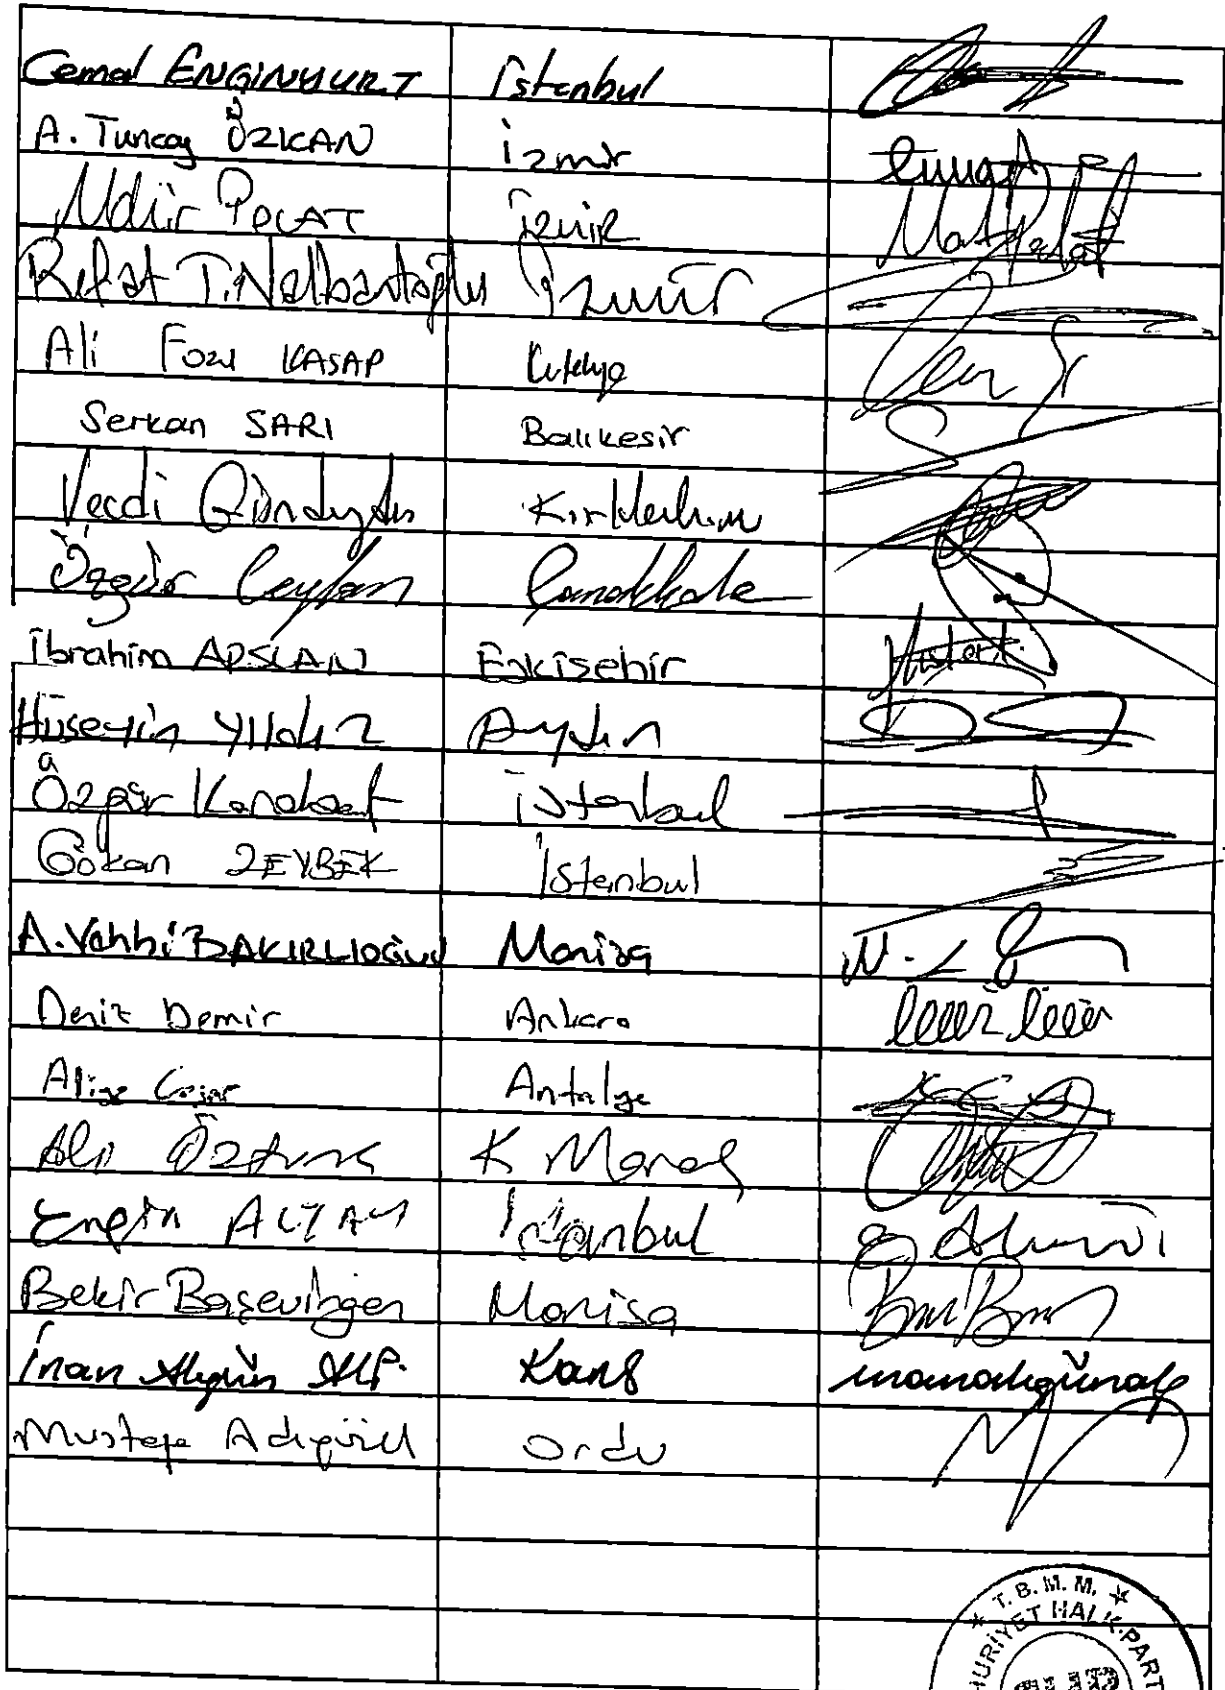 Cemal ENGİNYURT İstanbul
A. Tuncay ÖZKAN İzmir
Mahir POLAT İzmir
Rıfat T. Nalbantoğlu İzmir
Ali Fazıl KASAP Kütahya
Serkan SARI Balıkesir
Vecdi Gündoğdu Kırklareli
Özgür Ceylan Çanakkale
İbrahim ARSLAN Eskişehir
Hüseyin Yıldız Aydın
Özgür Karabat İstanbul
Gökan ZEYBEK İstanbul
A. Vehbi BAKIRLIOĞLU Manisa
Deniz Demir Ankara
Aliye Coşar Antalya
Ali Öztunç K Maraş
Engin ALTAY İstanbul
Bekir Başevirgen Manisa
İnan Akgün ALP. Kars inanakgünalp
Mustafa Adıgüzel Ordu
T.B.M.M.
HURİYET HALK PART